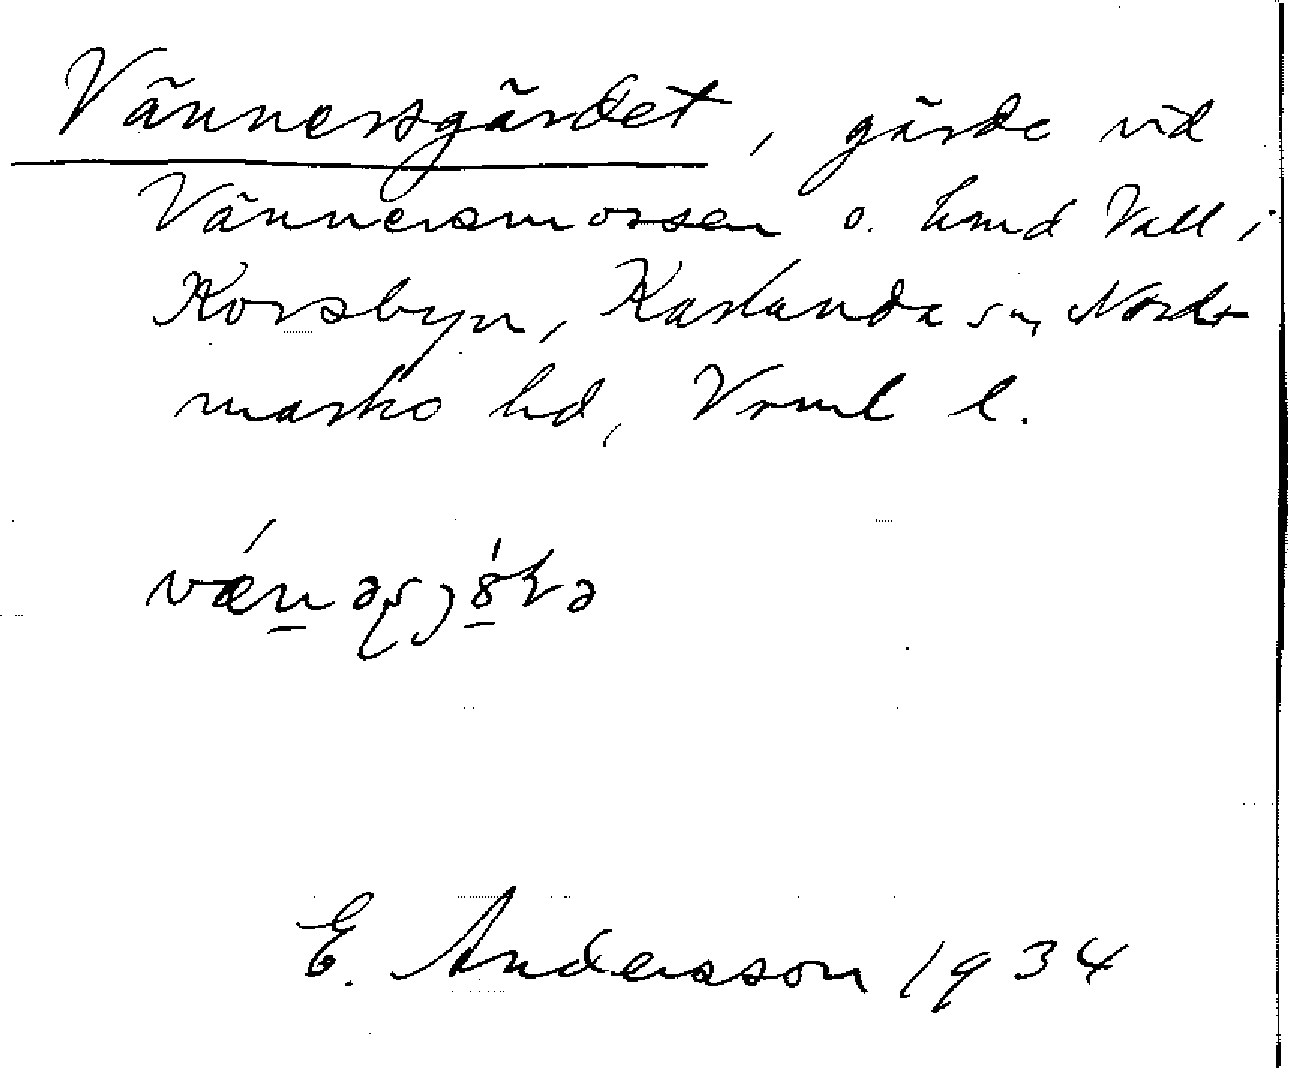 Vännersgärdet, gärde vid
Vännersmossen o. hmd Vall i
Korsbyn, Karlanda sn, Nord-
marks hd, Vrml l.
E. Andersson 1934